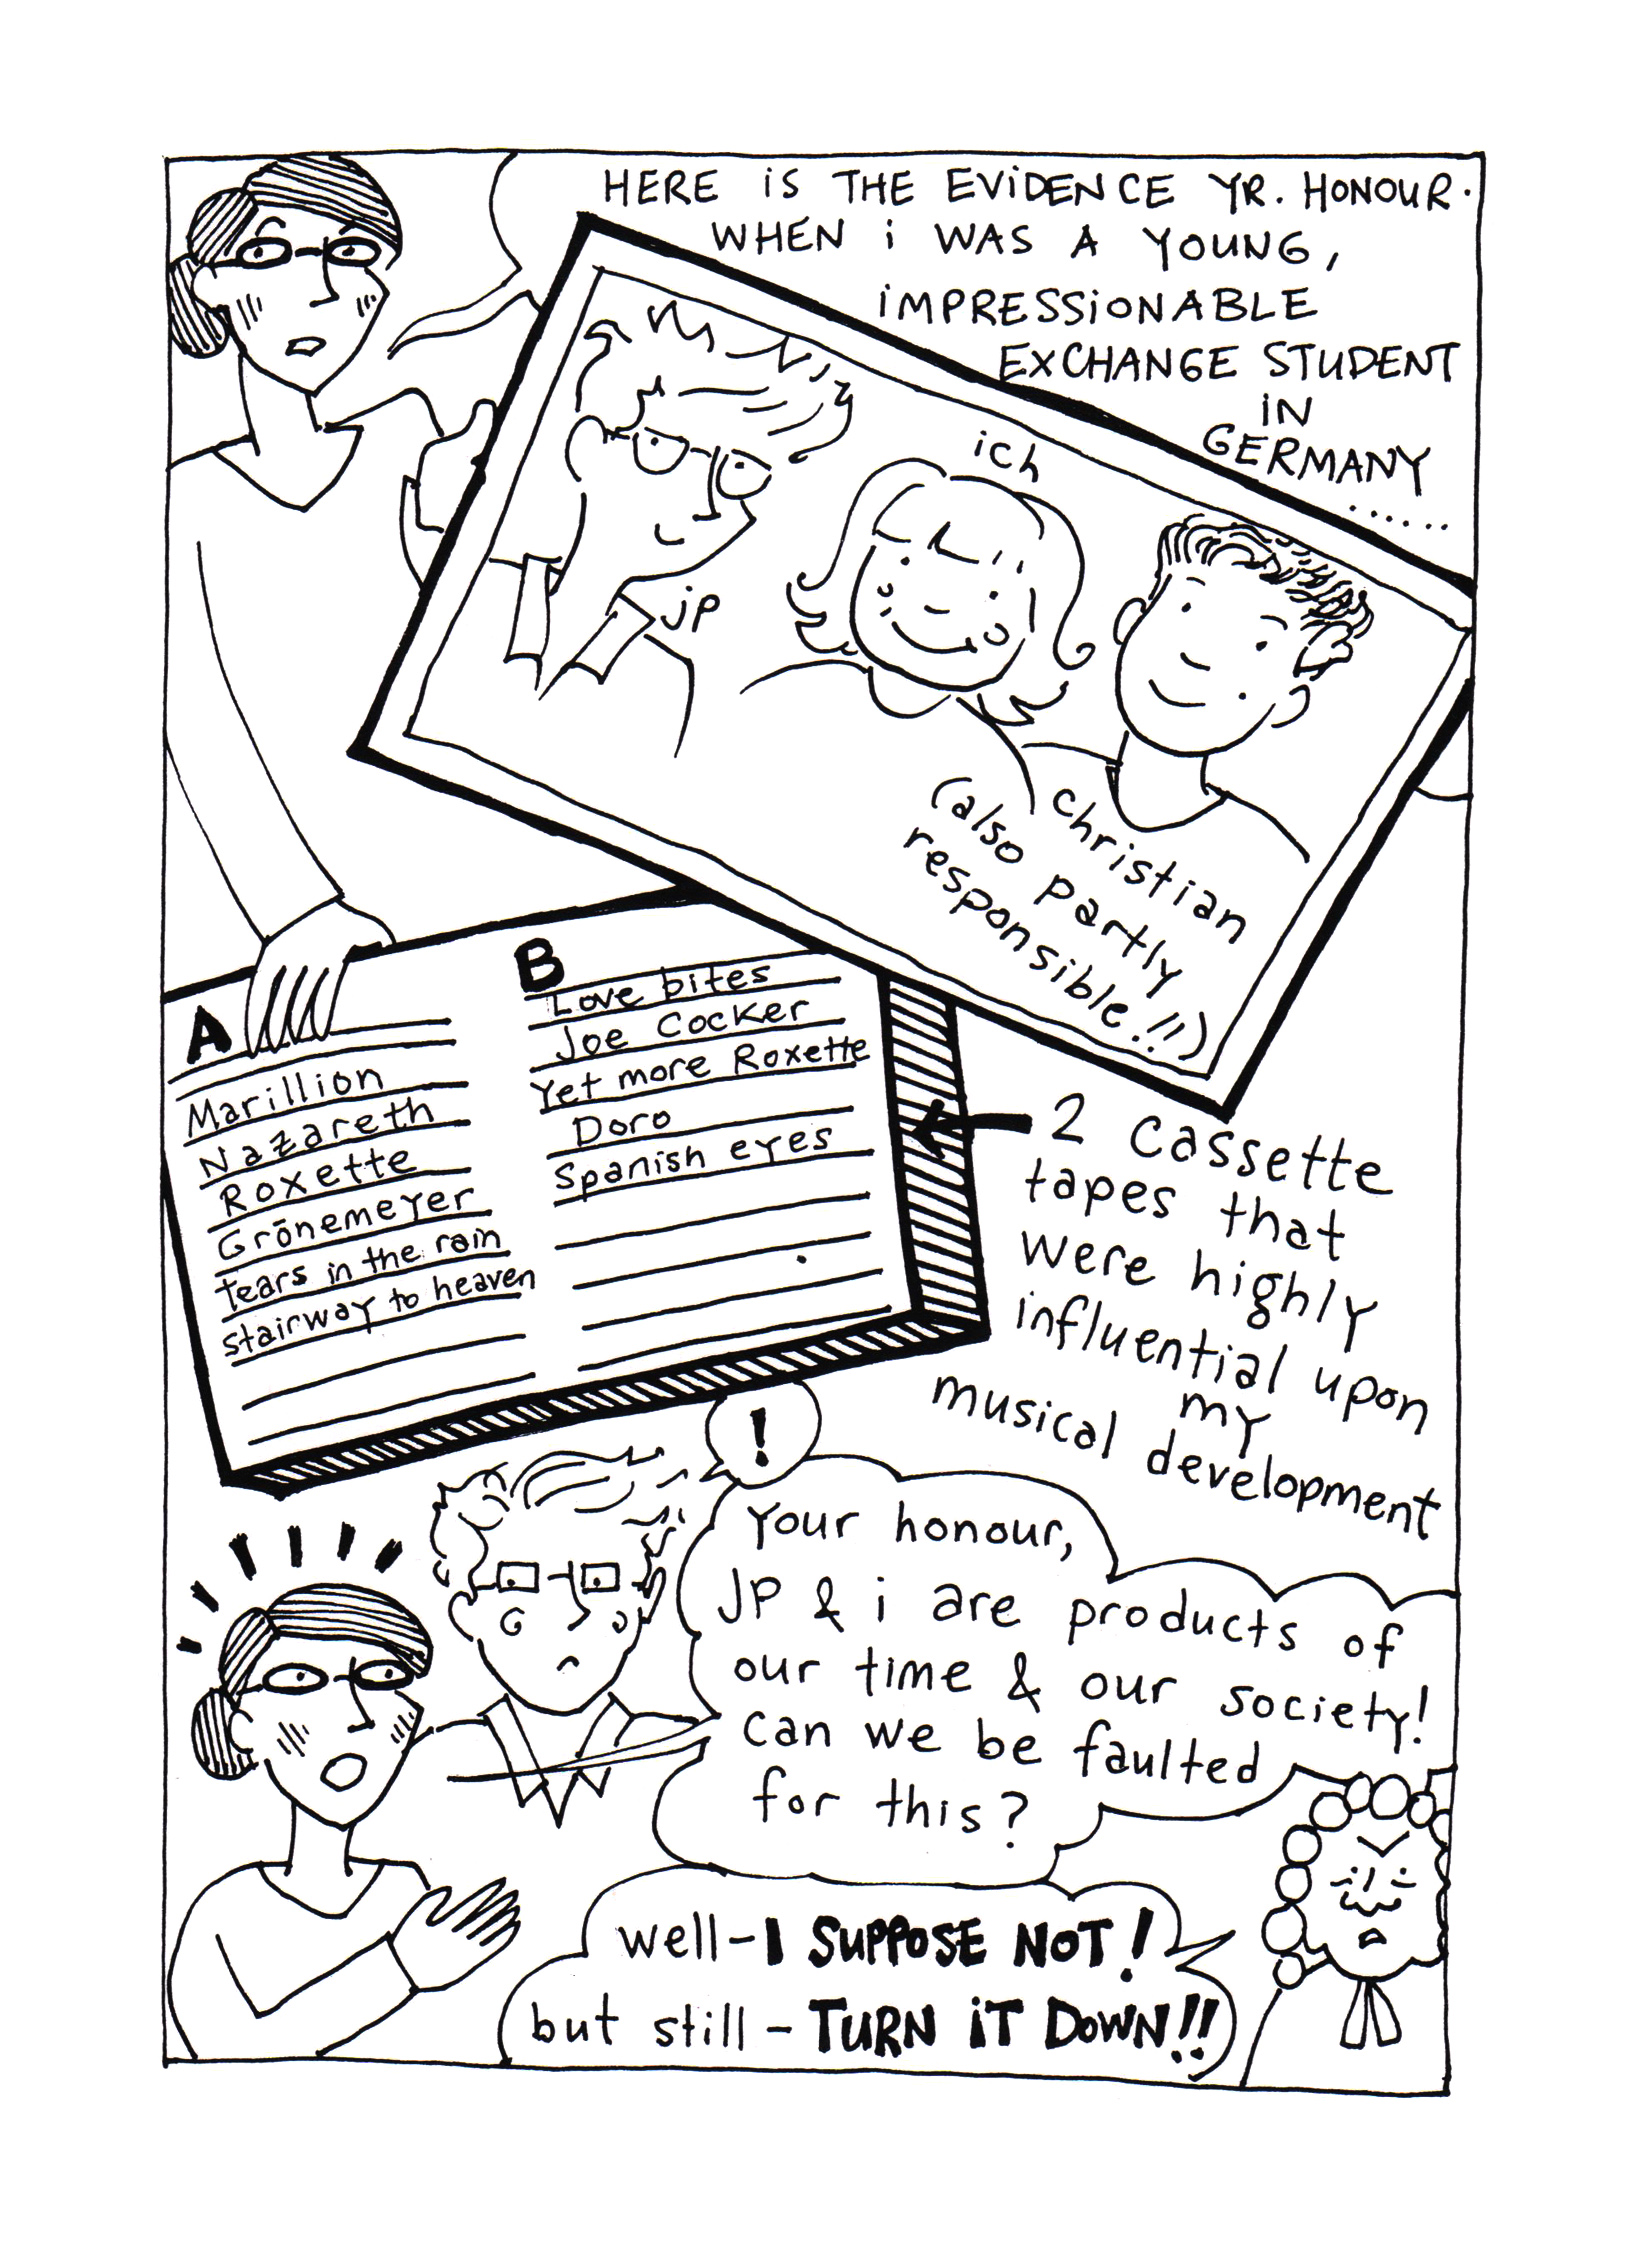 HERE iS THE EViDENCE YR. HONOUR.
WHEN i WAS A YOUNG,
iMPRESSiONABLE
EXCHANGE STUDENT
iN
GERMANY
......
ich
jp
christian
(also partly
responsible!!)
A
Marillion
Nazareth
Roxette
Grōnemeyer
tears in the rain
stairway to heaven
B
Love bites
Joe Cocker
Yet more Roxette
Doro
Spanish eyes
2 cassette
tapes that
were highly
influential upon
my
musical development
!
Your honour,
JP & i are products of
our time & our society!
can we be faulted
for this?
well - I SUPPOSE NOT!
but still - TURN iT DOWN!!